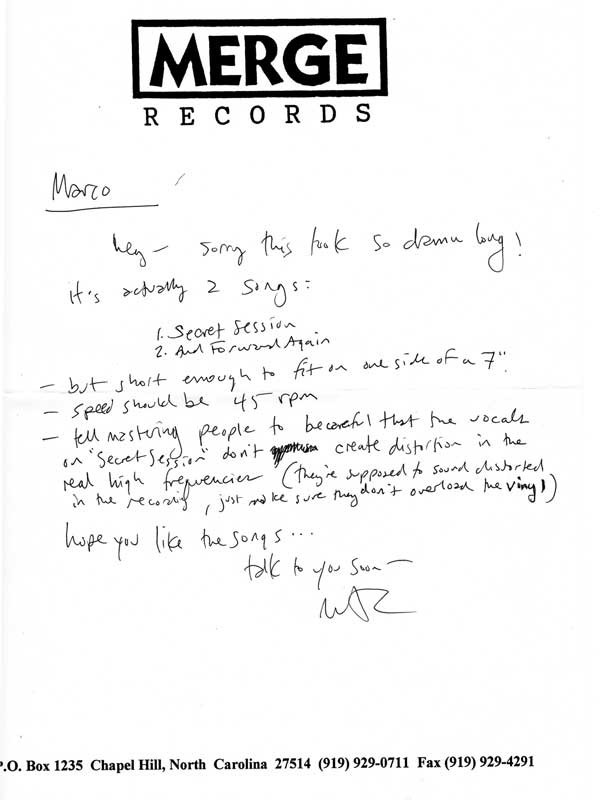 MERGE
RECORDS
Marco
hey – sorry this took so damn long!
it's actually 2 songs:
1. Secret Session
2. And Forward Again
– but short enough to fit on one side of a 7".
– speed should be 45 rpm
– tell mastering people to be careful that the vocals
on "Secret Session" don't create distortion in the
real high frequencies (they're supposed to sound distorted
in the recording, just make sure they don't overload the vinyl)
hope you like the songs...
talk to you soon –
P.O. Box 1235 Chapel Hill, North Carolina 27514 (919) 929-0711 Fax (919) 929-4291